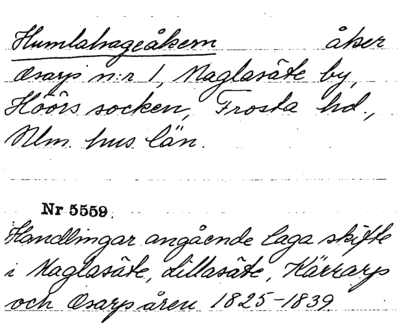 Humlahageåkern åker
Osarp n:r 1, Maglasäte by,
Höörs socken, Frosta hd.,
Mlm. hus län.
Nr 5559.
Handlingar angående laga skifte
i Maglasäte, Lillasäte, Kärrarp
och Osarp åren 1825-1839